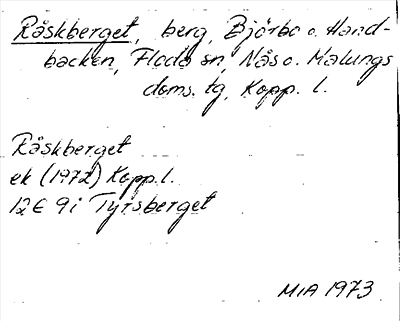 Råskberget, berg, Björbo o. Hand-
backen, Floda sn, Nås o. Malungs
doms. tg, Kopp. l.
Råskberget
ek (1972) Kopp.l.
12 E 9i Tyrsberget
MIA 1973